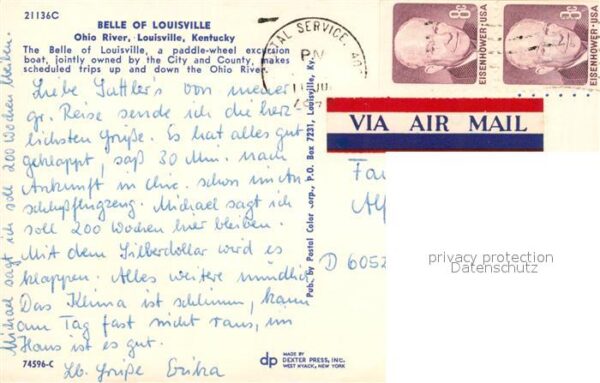 21136C
BELLE OF LOUISVILLE
Ohio River, Louisville, Kentucky
The Belle of Louisville, a paddle-wheel excursion
boat, jointly owned by the City and County, makes
scheduled trips up and down the Ohio River.
Liebe Sattlers von meiner
gr. Reise sende ich die herz
lichsten Grüße. Es hat alles gut
geklappt, saß 30 Min. nach
Ankunft in Chic. schon im An
schlußflugzeug. Michael sagt ich
soll 200 Wochen hier bleiben.
Mit dem Silberdollar wird es
klappen. Alles weitere mündlich
Das Klima ist schlimm, kann
am Tag fast nicht raus, im
Haus ist es gut.
Lb. Grüße Erika
Michael sagt ich soll 200 Wochen bleiben.
74596-C
dp
MADE BY
DEXTER PRESS, INC.
WEST NYACK, NEW YORK
Pub. by Postal Color Corp., P.O. Box 7231, Louisville, Ky.
POSTAL SERVICE
PM
8c
EISENHOWER·USA
8c
EISENHOWER·USA
VIA AIR MAIL
D 6052
privacy protection
Datenschutz